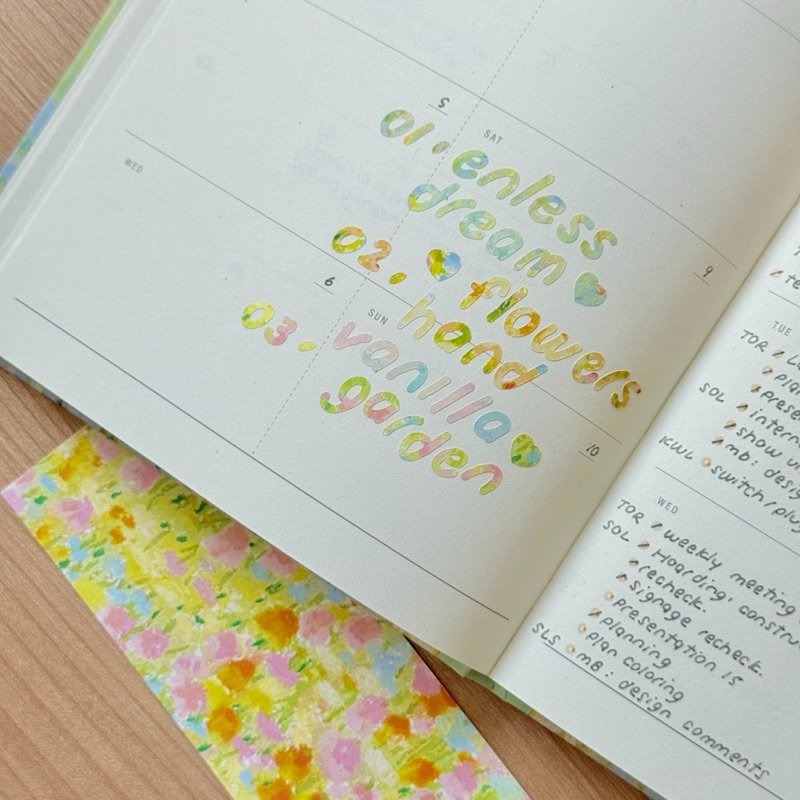 5
SAT
01. enless
dream
9
WED
02. flowers
6
SUN
hand
03. vanilla
garden
10
TUE
TOR
SOL
intern
show
mb: desig
KWL switch/plug
WED
TOR weekly meeting
SOL Hoarding: constru
recheck.
signage recheck.
presentation is
planning
plan coloring
SLS mB: design comments